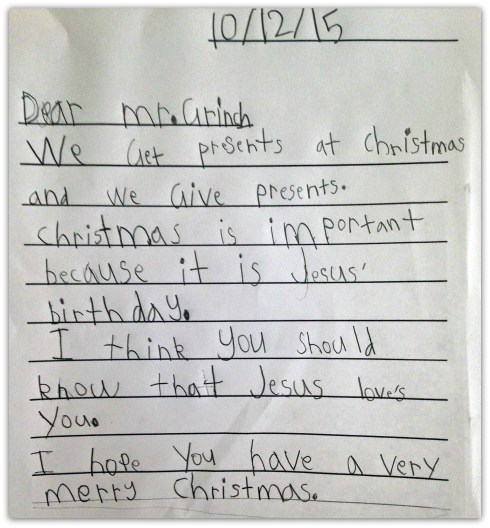 10/12/15
Dear mr. Grinch
We Get presents at christmas
and we Give presents.
christmas is important
because it is Jesus'
birthday.
I think you should
know that Jesus love's
you.
I hope you have a very
merry christmas.